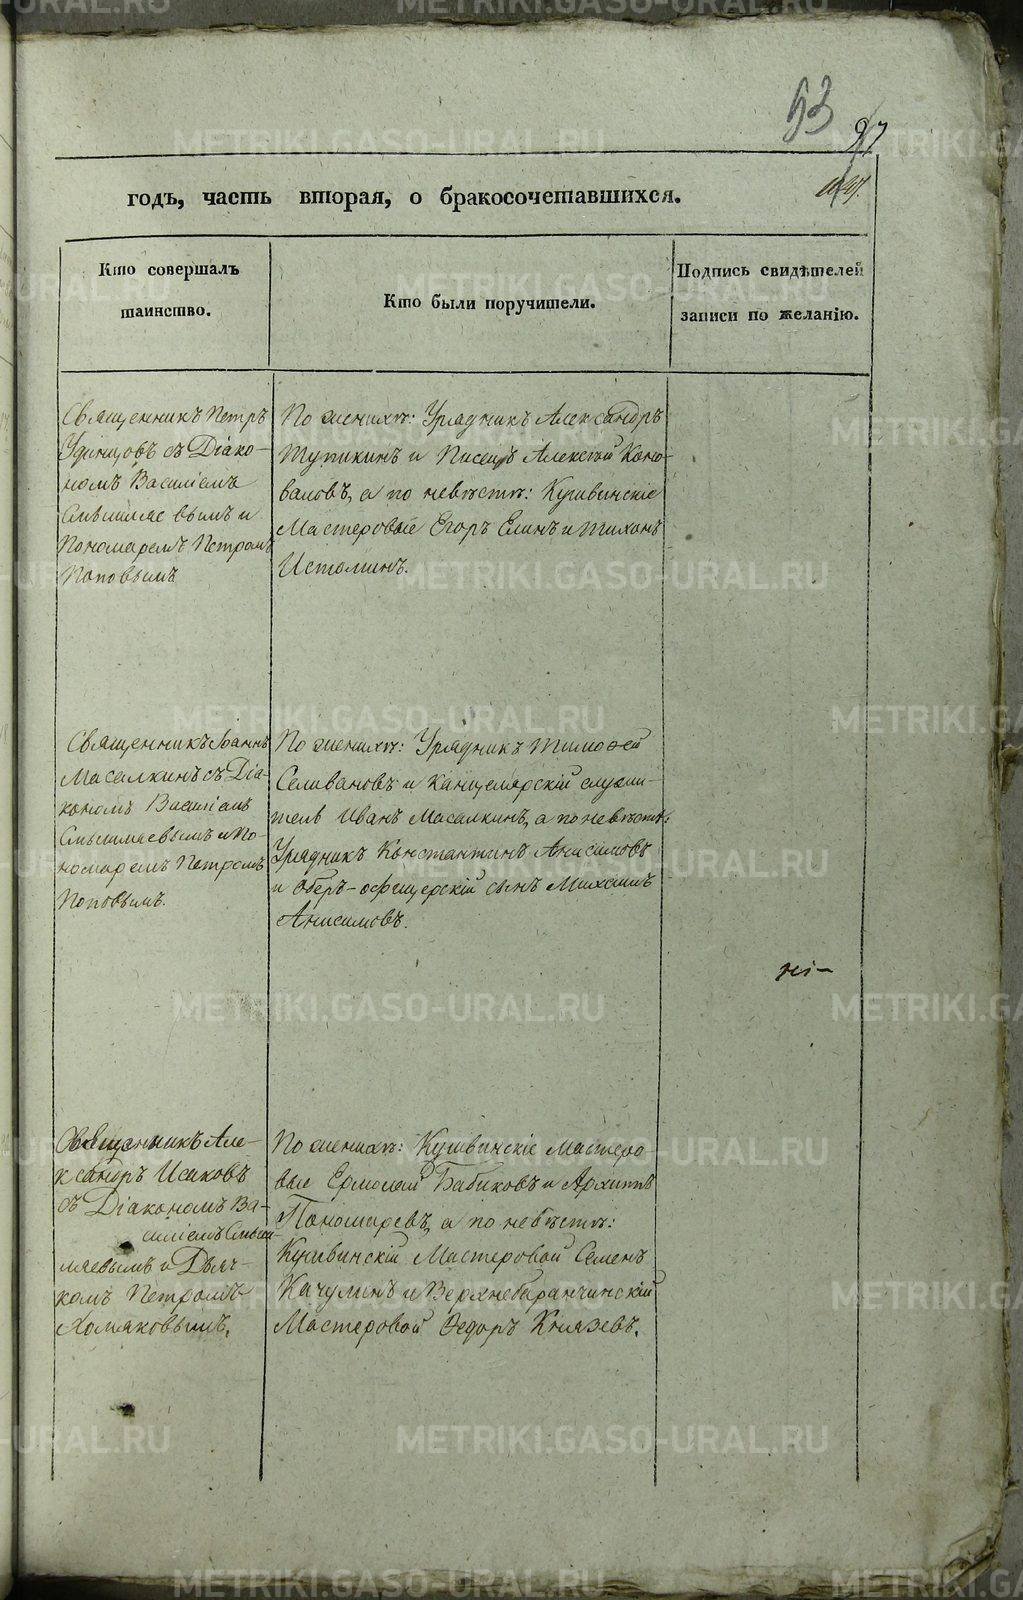 53
97
годъ, часть вторая, о бракосочетавшихся.
Кто совершалъ
таинство.
Кто были поручители.
Подпись свидѣтелей
записи по желанію.
Священникъ Петръ
Удинцовъ съ Діако-
номъ Василіемъ
Смышляевымъ и
Пономаремъ Петромъ
Поповымъ
По женихѣ: Урядникъ Александръ
Тупикинъ и Писецъ Алексѣй Коно-
валовъ, а по невѣстѣ: Кушвинскіе
Мастеровые Егоръ Елинъ и Тихонъ
Истоминъ.
Священникъ Іоаннъ
Масалкинъ съ Діа-
кономъ Василіемъ
Смышляевымъ и По-
номаремъ Петромъ
Поповымъ.
По женихѣ: Урядникъ Тимоѳей
Селивановъ и Канцелярскій служи-
тель Иванъ Масалкинъ, а по невѣстѣ:
Урядникъ Константинъ Анисимовъ
и Оберъ-офицерскій сынъ Михаилъ
Анисимовъ.
Священникъ Але-
ксандръ Исаковъ
съ Діакономъ Ва-
силіемъ Смыш-
ляевымъ и Дьяч-
комъ Петромъ
Хомяковымъ.
По женихѣ: Кушвинскіе Мастеро-
вые Ермолай Бабиковъ и Архипъ
Пономаревъ, а по невѣстѣ:
Кушвинскій Мастеровой Семенъ
Качулинъ и Верхнебаранчинскій
Мастеровой Ѳедоръ Князевъ.
METRIKI.GASO-URAL.RU